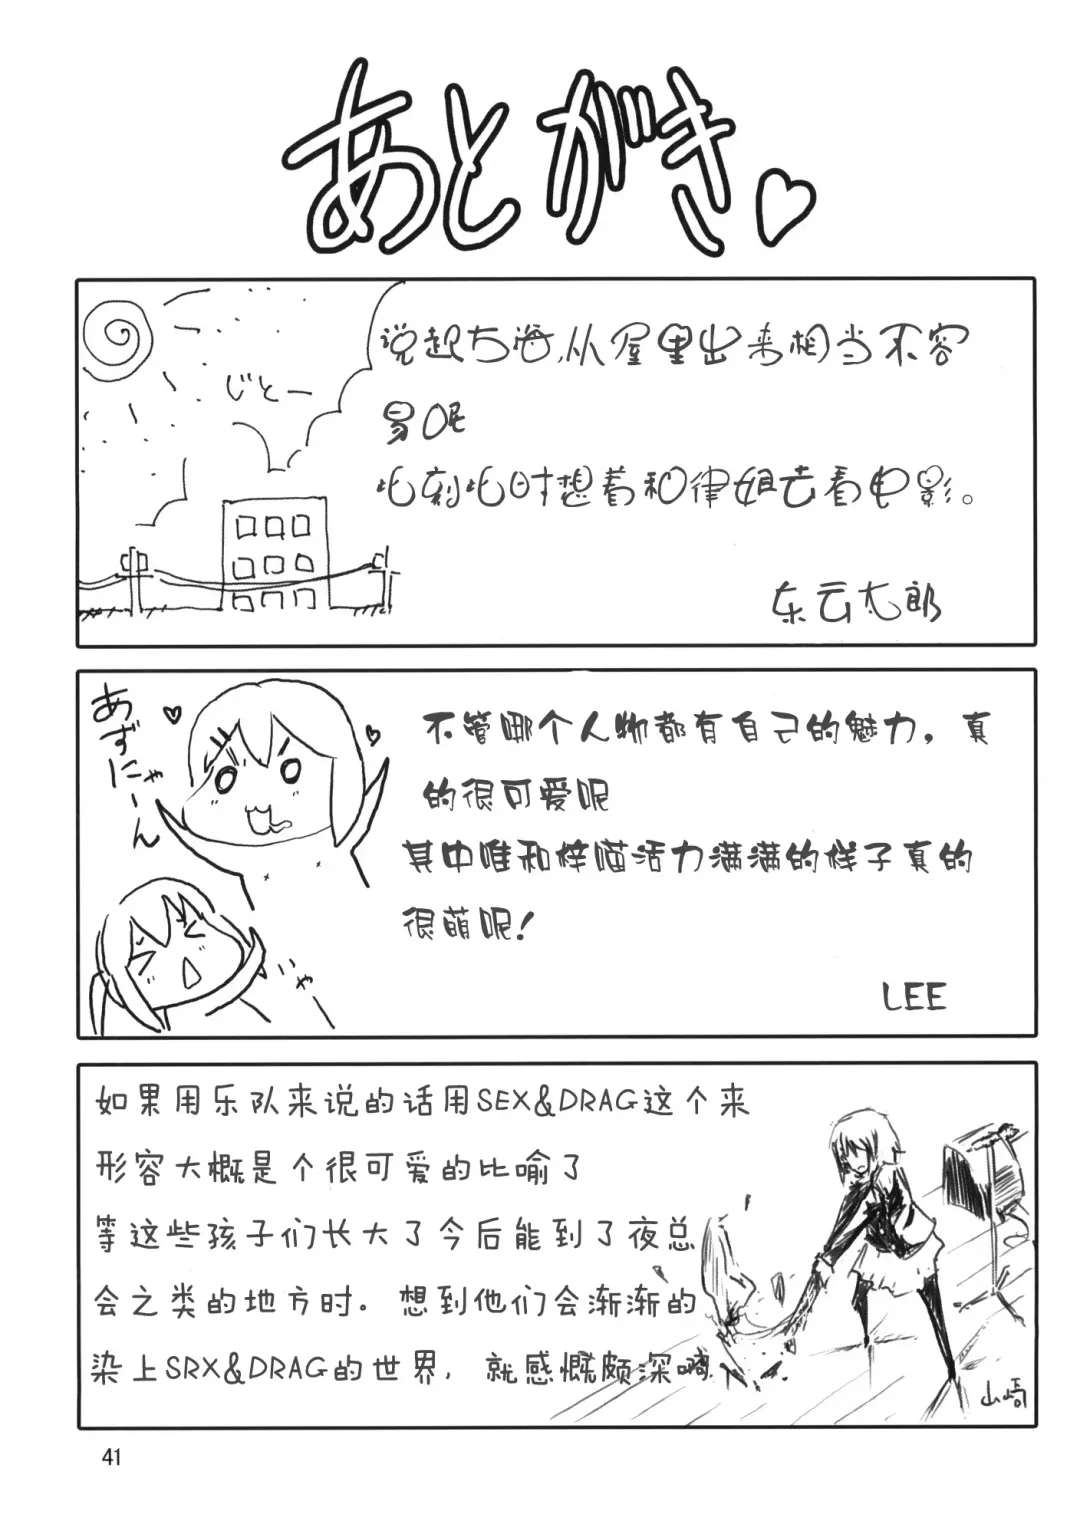 あとがき♡
じとー
说起大海,从屋里出来相当不容
易呢
此刻此时想着和律姐去看电影。
东云太郎
あずにゃーん
不管哪个人物都有自己的魅力，真
的很可爱呢
其中唯和梓喵活力满满的样子真的
很萌呢!
いやー
LEE
如果用乐队来说的话用SEX&DRAG这个来
形容大概是个很可爱的比喻了
等这些孩子们长大了今后能到了夜总
会之类的地方时。想到他们会渐渐的
染上SRX&DRAG的世界，就感慨颇深嘀
山崎
41